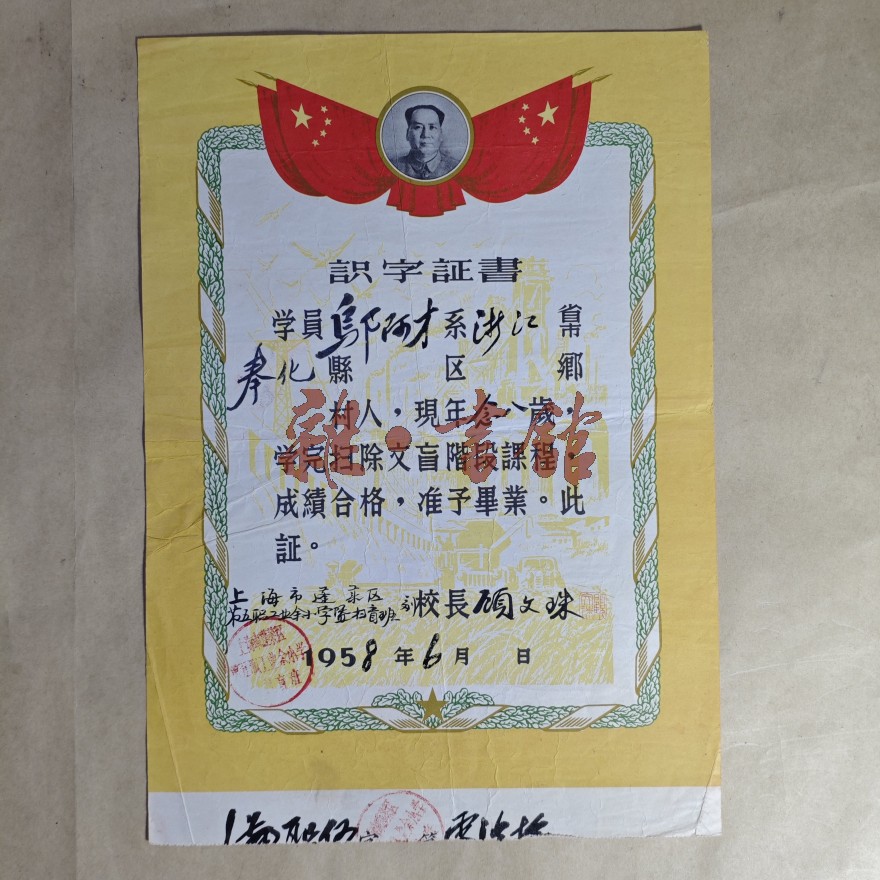 識字証書
学員鄔阿才系浙江省市
奉化縣 区 鄉
村人，現年念八歲，
学完扫除文盲階段課程，
成績合格，准予畢業。此
証。
上海市蓬萊区
第五职工业余小学暨扫盲班
副校長顾文珠
1958年6月 日
雜·書館